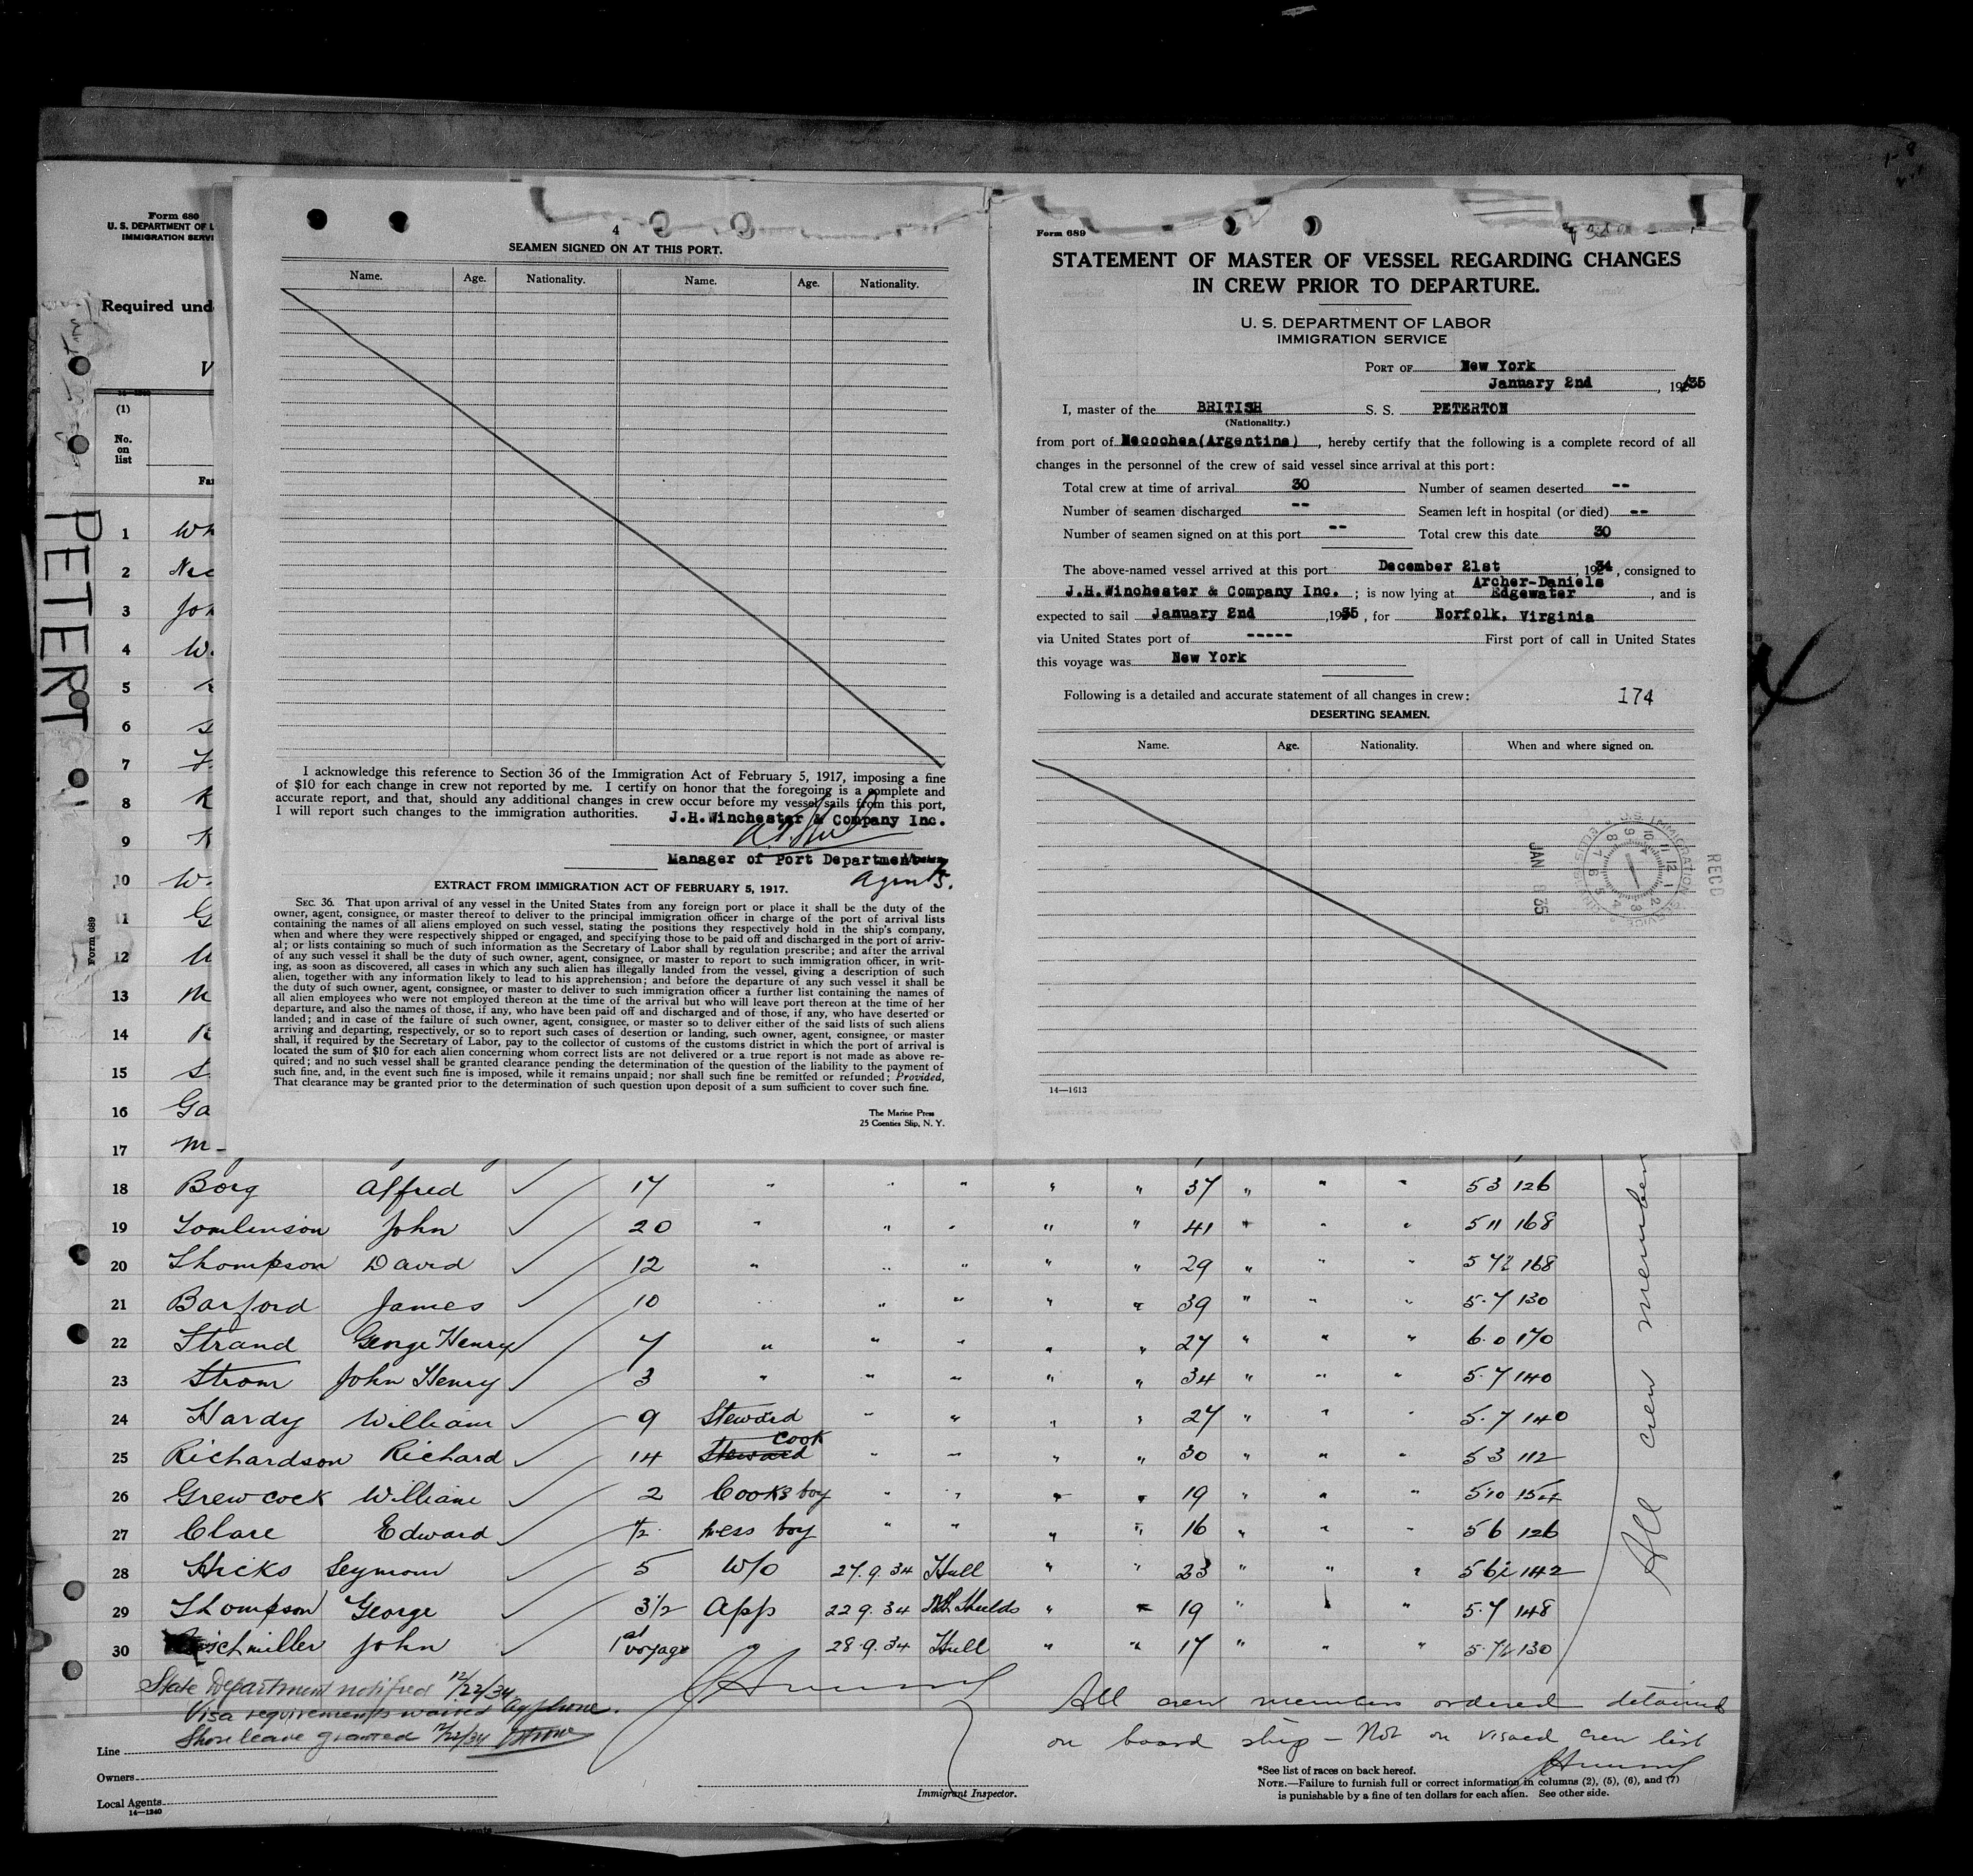 Form 680
U. S. DEPARTMENT OF L
IMMIGRATION SERVI
Required und
V
(1)
No.
on
list
Fa
PETERT
Form 689
1 Wh
2 Nic
3 Joh
4 W.
5
6 S
7
8 K
9
10 W.
11 G
12 W
13 M
14 R
15 S
16 Ga
17 M
4
SEAMEN SIGNED ON AT THIS PORT.
Name. Age. Nationality. Name. Age. Nationality.
I acknowledge this reference to Section 36 of the Immigration Act of February 5, 1917, imposing a fine
of $10 for each change in crew not reported by me. I certify on honor that the foregoing is a complete and
accurate report, and that, should any additional changes in crew occur before my vessel sails from this port,
I will report such changes to the immigration authorities. J.H.Winchester & Company Inc.
Manager of Port Department
Agents.
EXTRACT FROM IMMIGRATION ACT OF FEBRUARY 5, 1917.
SEC. 36. That upon arrival of any vessel in the United States from any foreign port or place it shall be the duty of the
owner, agent, consignee, or master thereof to deliver to the principal immigration officer in charge of the port of arrival lists
containing the names of all aliens employed on such vessel, stating the positions they respectively hold in the ship's company,
when and where they were respectively shipped or engaged, and specifying those to be paid off and discharged in the port of arriv-
al; or lists containing so much of such information as the Secretary of Labor shall by regulation prescribe; and after the arrival
of any such vessel it shall be the duty of such owner, agent, consignee, or master to report to such immigration officer, in writ-
ing, as soon as discovered, all cases in which any such alien has illegally landed from the vessel, giving a description of such
alien, together with any information likely to lead to his apprehension; and before the departure of any such vessel it shall be
the duty of such owner, agent, consignee, or master to deliver to such immigration officer a further list containing the names of
all alien employees who were not employed thereon at the time of the arrival but who will leave port thereon at the time of her
departure, and also the names of those, if any, who have been paid off and discharged and of those, if any, who have deserted or
landed; and in case of the failure of such owner, agent, consignee, or master so to deliver either of the said lists of such aliens
arriving and departing, respectively, or so to report such cases of desertion or landing, such owner, agent, consignee, or master
shall, if required by the Secretary of Labor, pay to the collector of customs of the customs district in which the port of arrival is
located the sum of $10 for each alien concerning whom correct lists are not delivered or a true report is not made as above re-
quired; and no such vessel shall be granted clearance pending the determination of the question of the liability to the payment of
such fine, and, in the event such fine is imposed, while it remains unpaid; nor shall such fine be remitted or refunded; Provided,
That clearance may be granted prior to the determination of such question upon deposit of a sum sufficient to cover such fine.
The Marine Press
25 Coenties Slip, N. Y.
Form 689
STATEMENT OF MASTER OF VESSEL REGARDING CHANGES
IN CREW PRIOR TO DEPARTURE.
U. S. DEPARTMENT OF LABOR
IMMIGRATION SERVICE
PORT OF New York
January 2nd, 1935
I, master of the BRITISH S. S. PETERTON
(Nationality.)
from port of Necochea(Argentina), hereby certify that the following is a complete record of all
changes in the personnel of the crew of said vessel since arrival at this port:
Total crew at time of arrival 30 Number of seamen deserted --
Number of seamen discharged -- Seamen left in hospital (or died) --
Number of seamen signed on at this port -- Total crew this date 30
The above-named vessel arrived at this port December 21st, 1934, consigned to
Archer-Daniels
J.H.Winchester & Company Inc. ; is now lying at Edgewater, and is
expected to sail January 2nd, 1935, for Norfolk, Virginia
via United States port of ----- First port of call in United States
this voyage was New York
Following is a detailed and accurate statement of all changes in crew: 174
DESERTING SEAMEN.
Name. Age. Nationality. When and where signed on.
RECD
JAN 8 35
U.S. IMMIGRATION SERVICE
14—1613
18 Borg Alfred 17 " " " " " 37 " " " 5 3 126
19 Tomlinson John 20 " " " " " 41 " " " 5 11 168
20 Thompson David 12 " " " " " 29 " " " 5 7½ 168
21 Barford James 10 " " " " 39 " " " 5.7 130
22 Strand George Henry 7 " " " " " 27 " " " 6.0 170
23 Strom John Henry 3 " " " " " 34 " " " 5.7 140
24 Hardy William 9 Steward " " " " 27 " " " 5.7 140
25 Richardson Richard 14 Steward cook " " " " 30 " " " 5 3 112
26 Grewcock William 2 Cooks boy " " " " 19 " " " 5 10 154
27 Clare Edward ½ mess boy " " " " 16 " " " 5 6 126
28 Hicks Seymour 5 W/O 27.9.34 Hull " " 23 " " " 5 6½ 142
29 Thompson George 3½ App 22 9.34 Nth Shields " " 19 " " " 5.7 148
30 schmiller John 1st voyage 28.9.34 Hull " " 17 " " " 5.7½ 130
All crew member
State Department notified 12/22/34
Visa requirements waived by phone.
Shore leave granted 12/22/34
All crew members ordered detained
on board ship - Not on visaed crew list
Line
Owners
Local Agents
14—1240
Immigrant Inspector.
*See list of races on back hereof.
NOTE.—Failure to furnish full or correct information in columns (2), (5), (6), and (7)
is punishable by a fine of ten dollars for each alien. See other side.